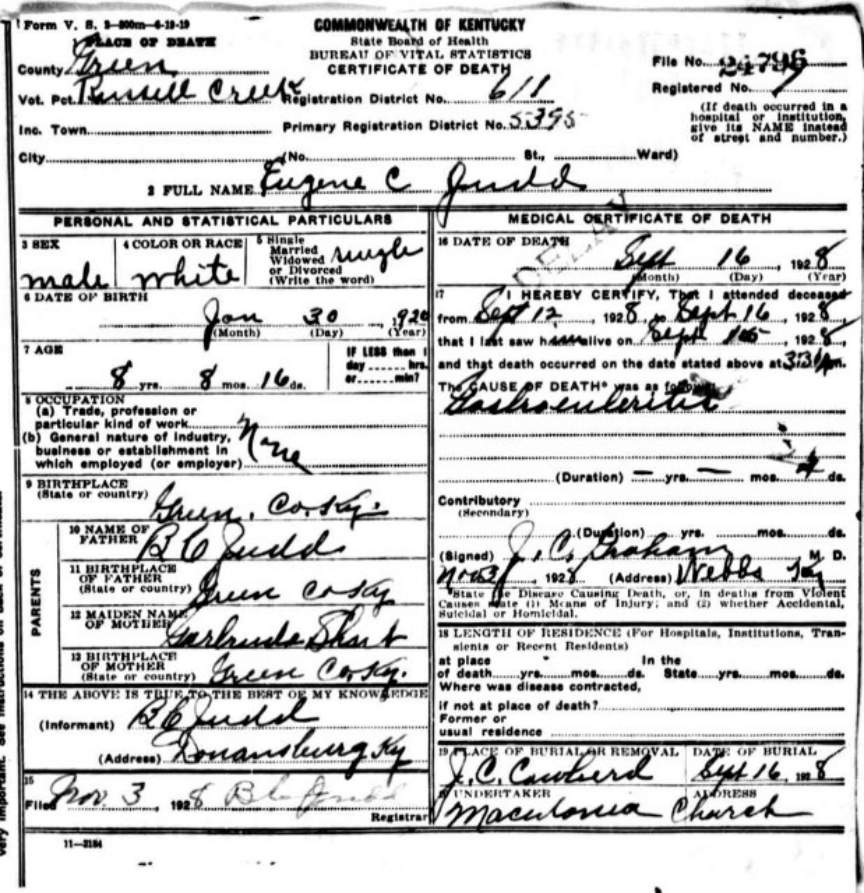 Form V. S. 2-300m-6-19-19
COMMONWEALTH OF KENTUCKY
State Board of Health
BUREAU OF VITAL STATISTICS
CERTIFICATE OF DEATH
PLACE OF DEATH
County Green
Vot. Pct. Russell Creek Registration District No. 611
Inc. Town Primary Registration District No. 5395
City (No. St., Ward)
File No. 24796
Registered No.
(If death occurred in a hospital or institution, give its NAME instead of street and number.)
2 FULL NAME Eugene C Judd
PERSONAL AND STATISTICAL PARTICULARS
3 SEX male
4 COLOR OR RACE white
5 Single Married Widowed or Divorced (Write the word) single
6 DATE OF BIRTH
Jan 30, 1920
(Month) (Day) (Year)
7 AGE
8 yrs. 8 mos. 16 ds.
IF LESS than 1 day hrs. or min?
8 OCCUPATION
(a) Trade, profession or particular kind of work
(b) General nature of industry, business or establishment in which employed (or employer) None
9 BIRTHPLACE (State or country) Green. Co. Ky.
PARENTS
10 NAME OF FATHER B C Judd
11 BIRTHPLACE OF FATHER (State or country) Green Co Ky
12 MAIDEN NAME OF MOTHER Gertrude
13 BIRTHPLACE OF MOTHER (State or country) Green Co. Ky.
14 THE ABOVE IS TRUE TO THE BEST OF MY KNOWLEDGE
(Informant) B C Judd
(Address) Donansburg Ky
15
Filed Nov. 3, 1928 B C Judd
Registrar
11-3184
MEDICAL CERTIFICATE OF DEATH
DELAY
16 DATE OF DEATH
Sept 16, 1928
(Month) (Day) (Year)
17 I HEREBY CERTIFY, That I attended deceased
from Sept 12, 1928, to Sept 16, 1928,
that I last saw him alive on Sept, 1928,
and that death occurred on the date stated above at m.
The CAUSE OF DEATH* was as follows:
Gastroenteritis
(Duration) — yrs. — mos. 4 ds.
Contributory
(Secondary)
(Duration) yrs. mos. ds.
(Signed) J. C. Graham M. D.
Nov 3, 1928 (Address) Webbs Ky
*State the Disease Causing Death, or, in deaths from Violent Causes state (1) Means of Injury; and (2) whether Accidental, Suicidal or Homicidal.
18 LENGTH OF RESIDENCE (For Hospitals, Institutions, Transients or Recent Residents)
at place of death yrs. mos. ds. In the State yrs. mos. ds.
Where was disease contracted,
if not at place of death?
Former or usual residence
19 PLACE OF BURIAL OR REMOVAL J. C. Cowherd
DATE OF BURIAL Sept 16, 1928
20 UNDERTAKER ADDRESS
Church